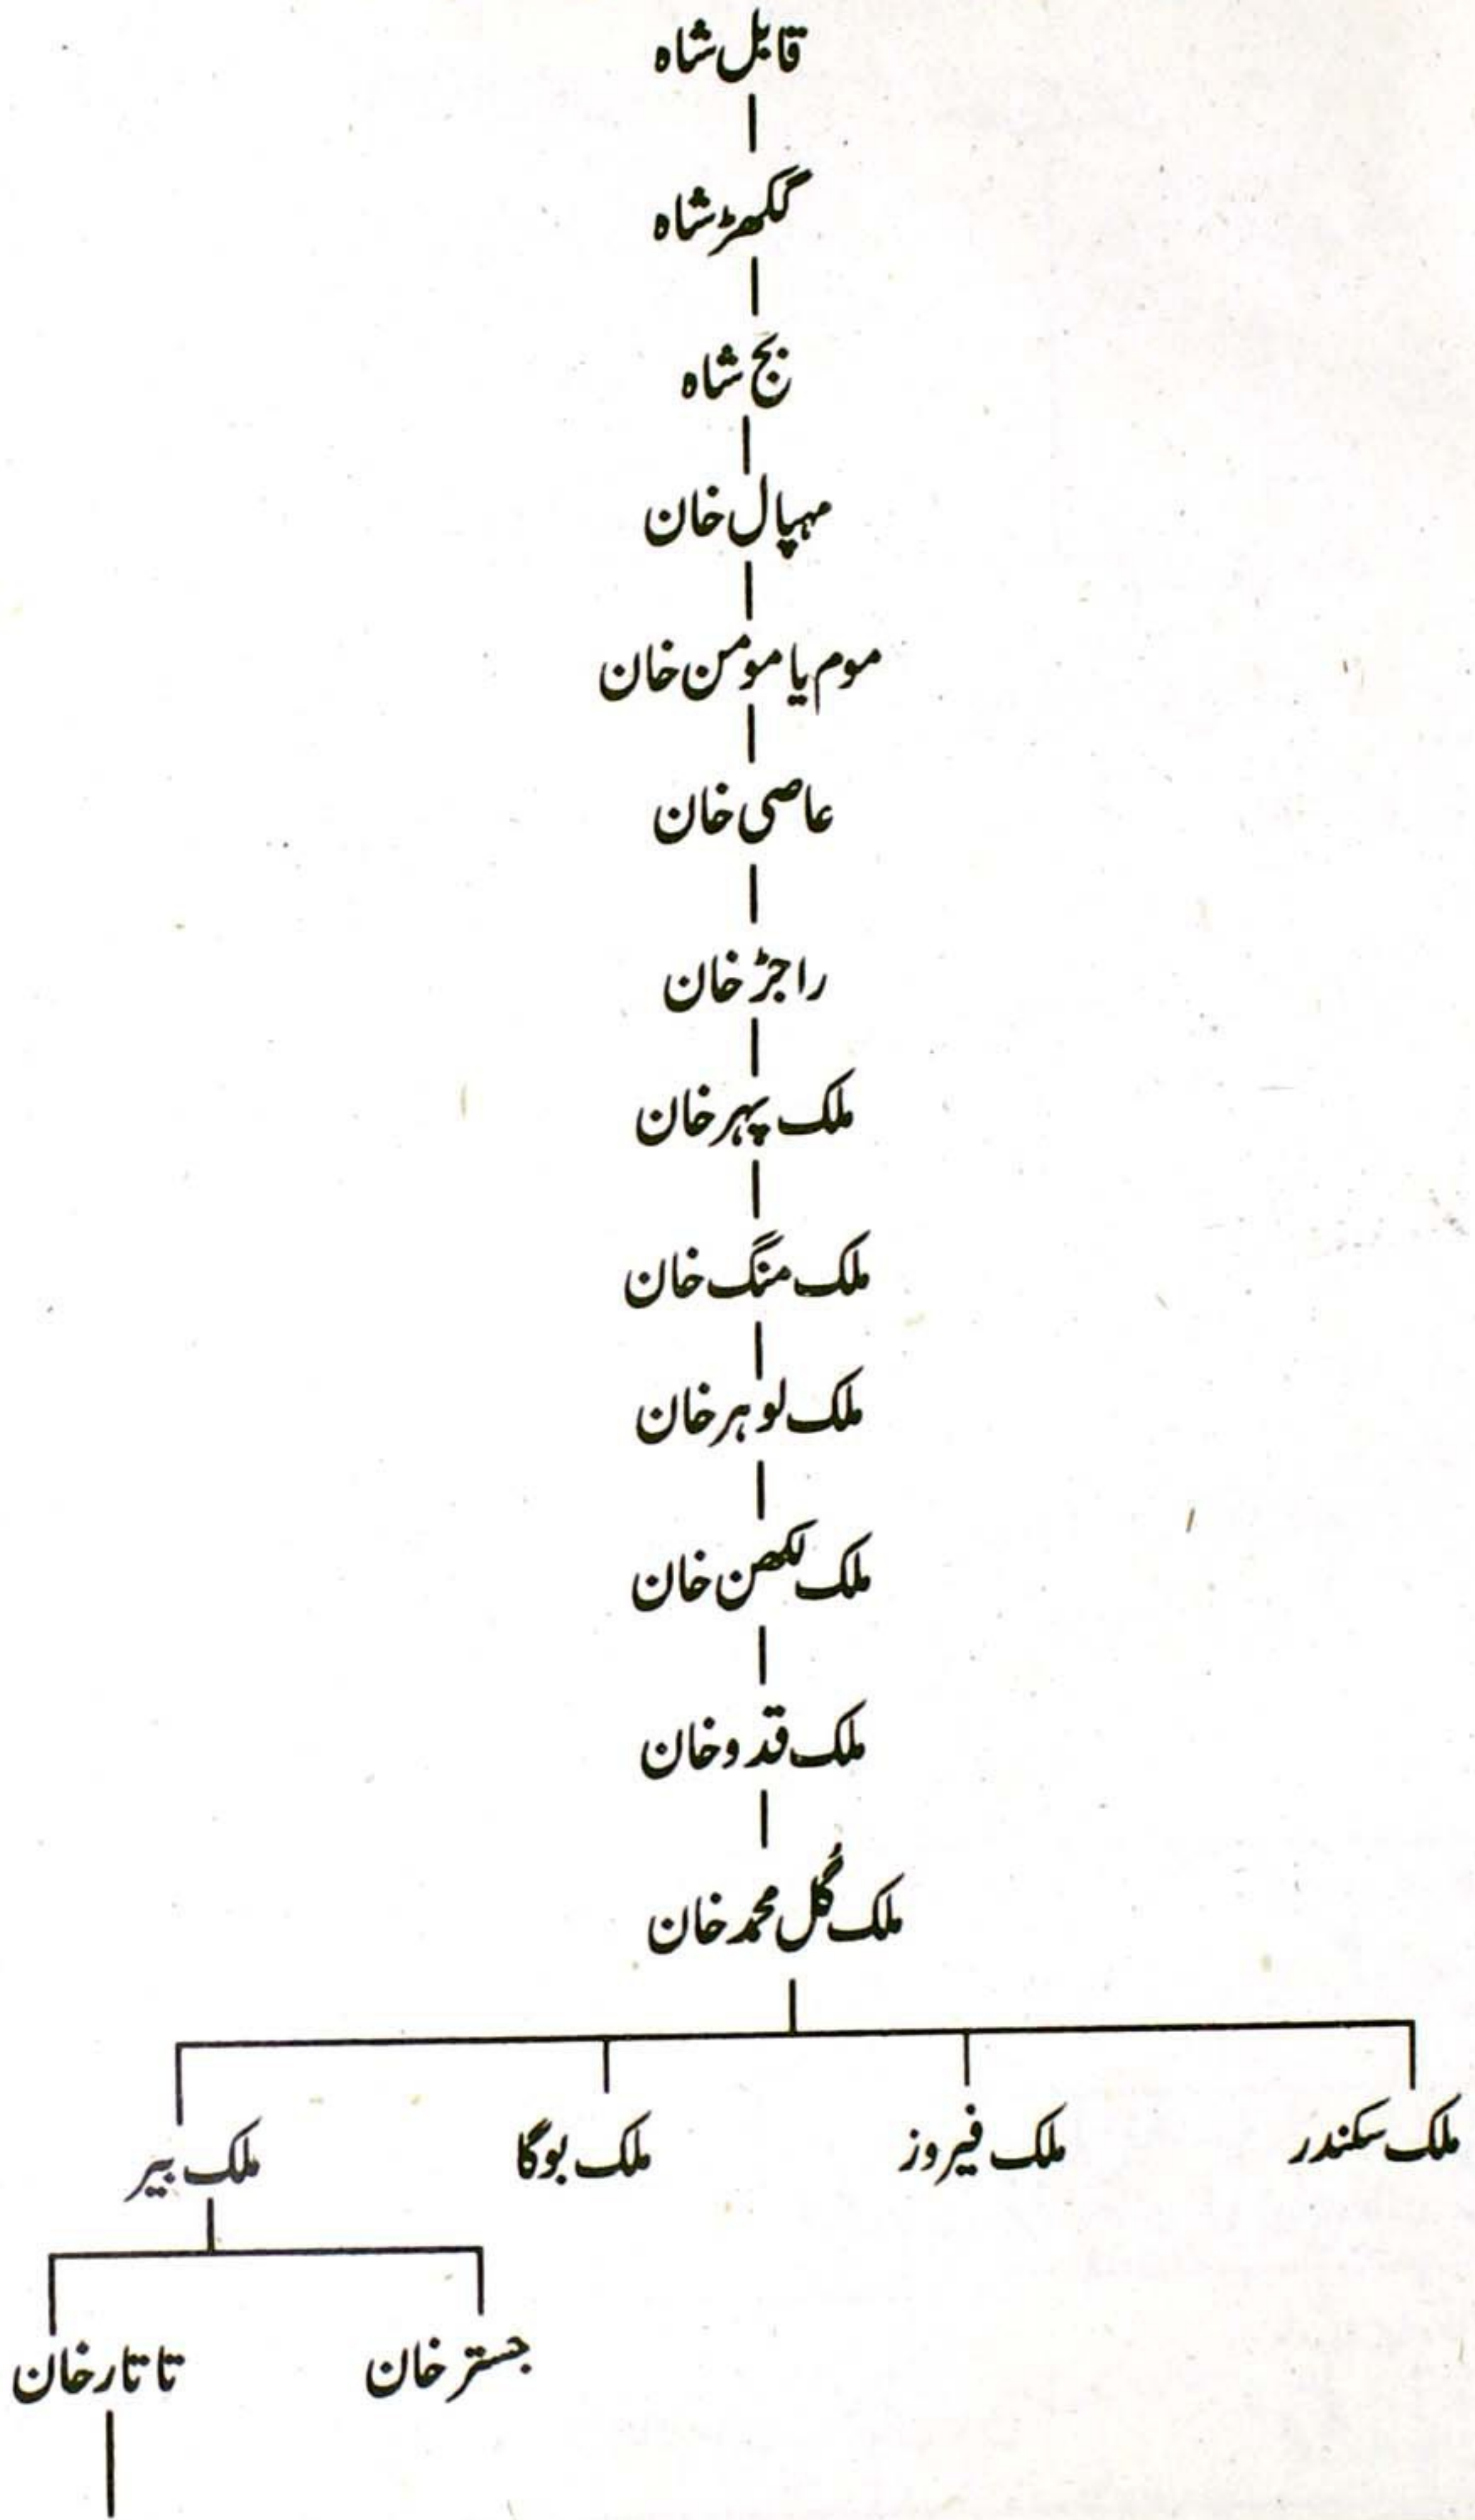 قابل شاہ
گکھڑ شاہ
بج شاہ
مہپال خان
موم یا مومن خان
عاصی خان
راجڑ خان
ملک پہر خان
ملک منگ خان
ملک لوہر خان
ملک لکھن خان
ملک قدو خان
ملک گُل محمد خان
ملک سکندر ملک فیروز ملک بوگا ملک بیر
جستر خان تاتار خان